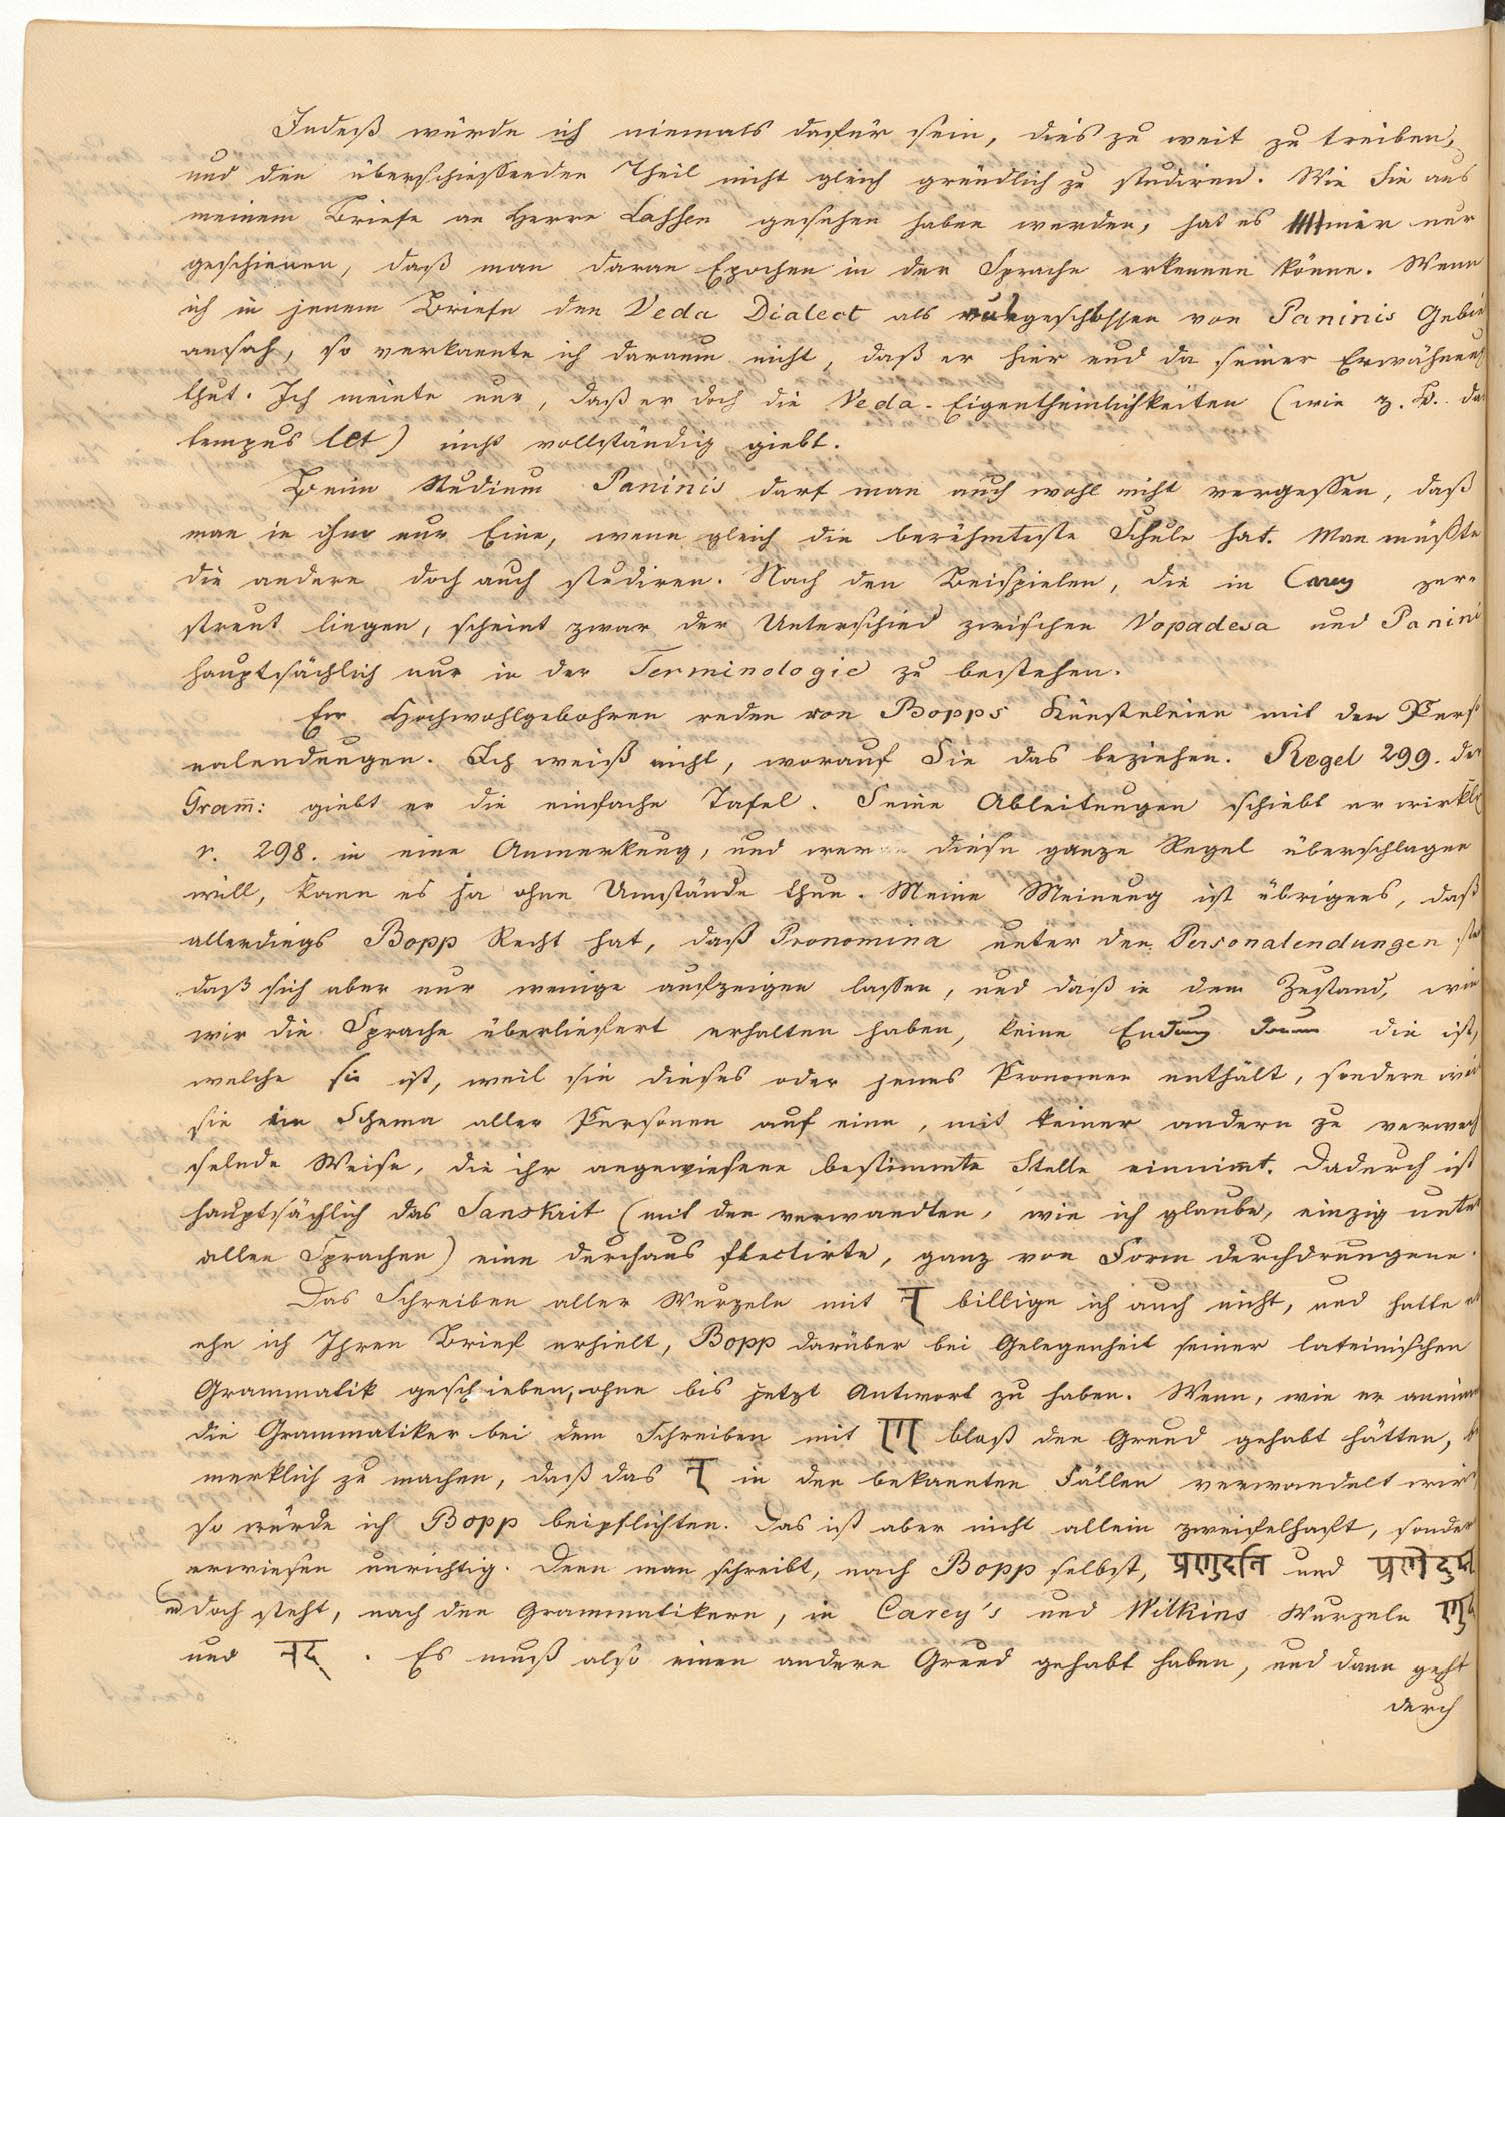 Indeß würde ich niemals dafür sein, dies zu weit zu treiben,
und den überschiessenden Theil nicht gleich gründlich zu studiren. Wie Sie aus
meinem Briefe an Herrn Lassen gesehen haben werden, hat es mir nur
geschienen, daß man daran Epochen in der Sprache erkennen könne. Wenn
ich in jenem Briefe den Veda Dialect als ausgeschlossen von Paninis Gebie
ansah, so verkannte ich darum nicht, daß er hier und da seiner Erwähnung
thut. Ich meinte nur, daß er doch die Veda-Eigenthümlichkeiten (wie z. B. das
tempus let) nicht vollständig giebt.
Beim Studium Paninis darf man auch wohl nicht vergessen, daß
man in ihm nur Eine, wenn gleich die berühmteste Schule hat. Man müßte
die andern doch auch studiren. Nach den Beispielen, die in Carey zer-
streut liegen, scheint zwar der Unterschied zwischen Vopadesa und Panini
hauptsächlich nur in der Terminologie zu bestehen.
Ew. Hochwohlgebohren reden von Bopps Künsteleien mit den Perso
nalendungen. Ich weiß nicht, worauf Sie das beziehen. Regel 299. der
Gram̅: giebt er die einfache Tafel. Seine Ableitungen schiebt er wirkl
r. 298. in eine Anmerkung, und wer diese ganze Regel überschlagen
will, kann es ja ohne Umstände thun. Meine Meinung ist übrigens, daß
allerdings Bopp Recht hat, daß Pronomina unter den Personalendungen
daß sich aber nur wenige aufzeigen lassen, und daß in dem Zustand, wie
wir die Sprache überliefert erhalten haben, keine Endung darum die ist,
welche sie ist, weil sie dieses oder jenes Pronomen enthält, sondern weil
sie im Schema aller Personen auf eine, mit keiner andern zu verwech
selnde Weise, die ihr angewiesene bestimmte Stelle einnimt. Dadurch ist
hauptsächlich das Sanskrit (mit den verwandten, wie ich glaube, einzig unter
allen Sprachen) eine durchaus flectirte, ganz von Form durchdrungene.
Das Schreiben aller Wurzeln mit न् billige ich auch nicht, und hatte
ehe ich Ihren Brief erhielt, Bopp darüber bei Gelegenheit seiner lateinischen
Grammatik geschrieben, ohne bis jetzt Antwort zu haben. Wenn, wie er annimt
die Grammatiker bei dem Schreiben mit ण् bloß den Grund gehabt hätten,
merklich zu machen, daß das न् in den bekannten Fällen verwandelt wird
so würde ich Bopp beipflichten. Das ist aber nicht allein zweifelhaft, sondern
erwiesen unrichtig. Denn man schreibt, nach Bopp selbst, प्रणुदति und
und doch steht, nach den Grammatikern, in Carey's und Wilkins Wurzeln णुद्
und नद् . Es muß also einen andern Grund gehabt haben, und dann geht
durch